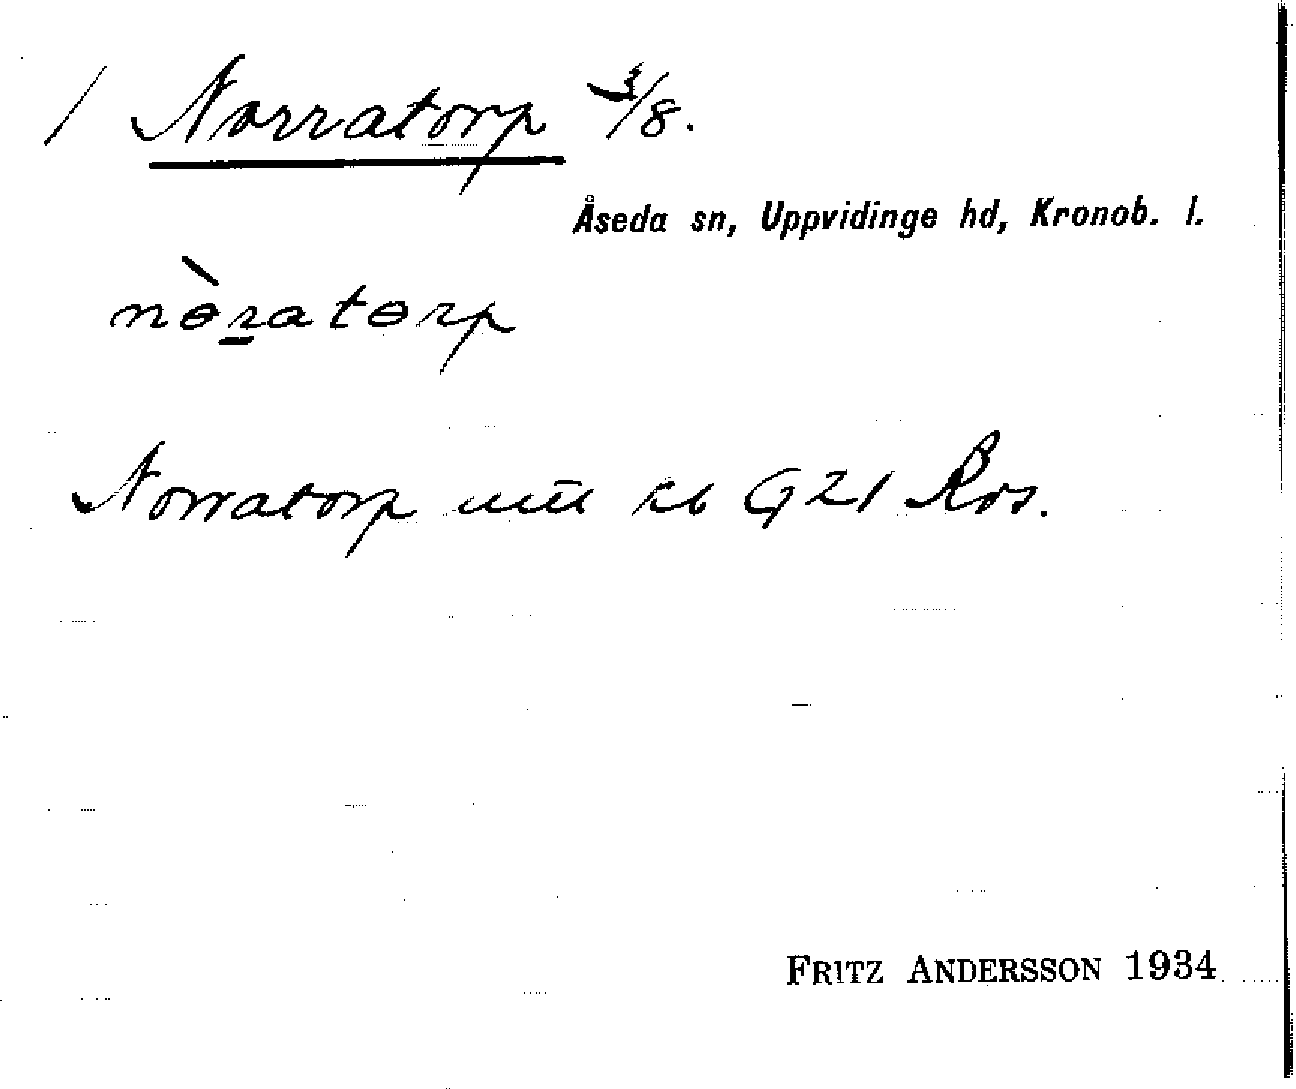 / Norratorp 3/8.
Åseda sn, Uppvidinge hd, Kronob. l.
nòratorp
Norratorp G21 Ros.
FRITZ ANDERSSON 1934